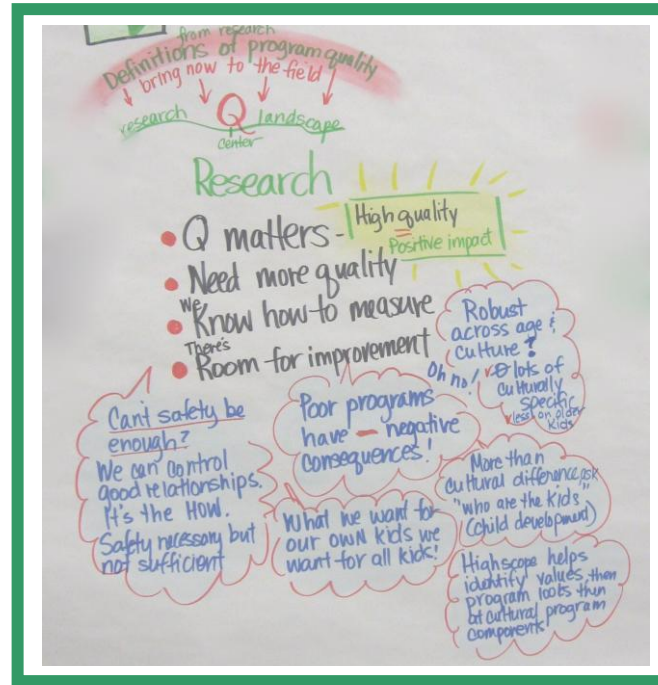 from research
Definitions of program quality
bring now to the field
research Q landscape
center
Research
• Q matters -
High quality
Positive impact
• Need more quality
• We Know how to measure
• There's Room for improvement
Robust
across age &
culture?
Oh no! lots of
culturally
specific
less on older
kids
Can't safety be
enough?
We can control
good relationships.
It's the HOW.
Safety necessary but
not sufficient
Poor programs
have — negative
consequences!
What we want for
our own kids we
want for all kids!
More than
cultural difference, ask
"who are the kids"
(child development)
Highscope helps
identify values, then
program looks then
at cultural program
components